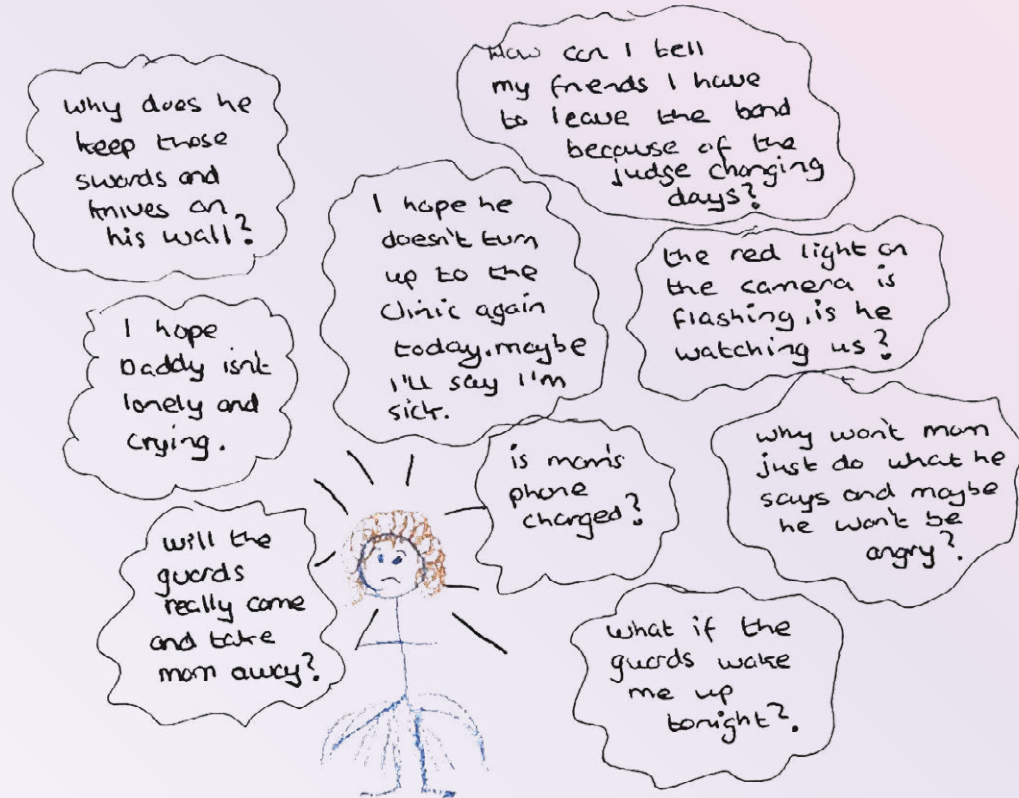 Why does he
keep those
swords and
knives on
his wall?
How can I tell
my friends I have
to leave the band
because of the
judge changing
days?
I hope he
doesn't turn
up to the
clinic again
today. maybe
I'll say I'm
sick.
the red light on
the camera is
flashing, is he
watching us?
I hope
Daddy isn't
lonely and
crying.
is mom's
phone
charged?
why won't mom
just do what he
says and maybe
he won't be
angry?
will the
guards
really come
and take
mom away?
what if the
guards wake
me up
tonight?